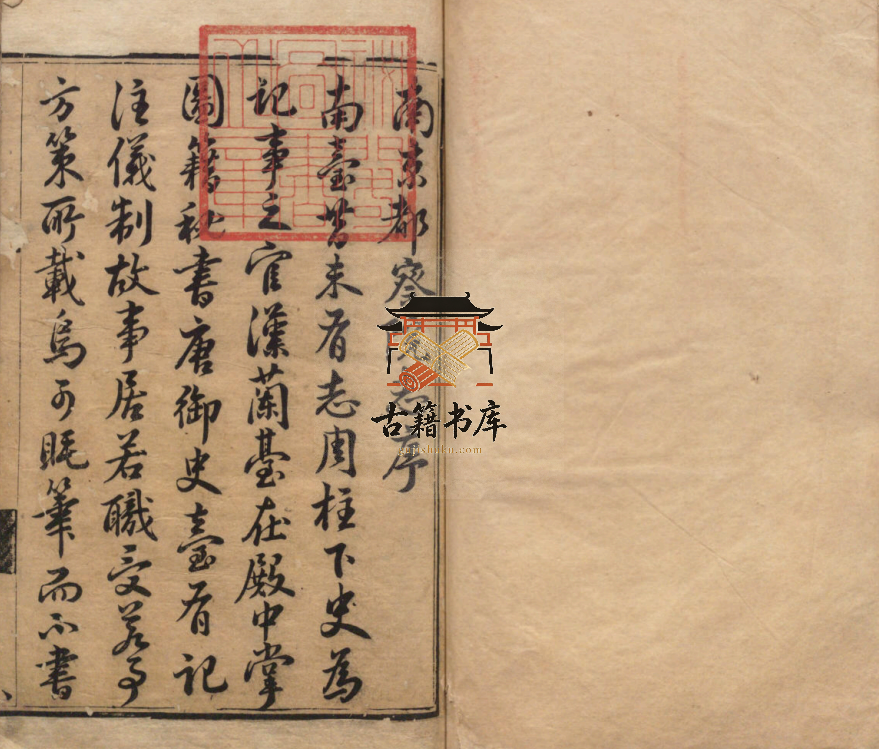 南京都察院志序
南臺昔未有志周柱下史為
記事之官漢蘭臺在殿中掌
圖籍秘書唐御史臺有記
注儀制故事居若職受若事
方策所載烏可筆而不書
秘閣圖書之章
古籍书库